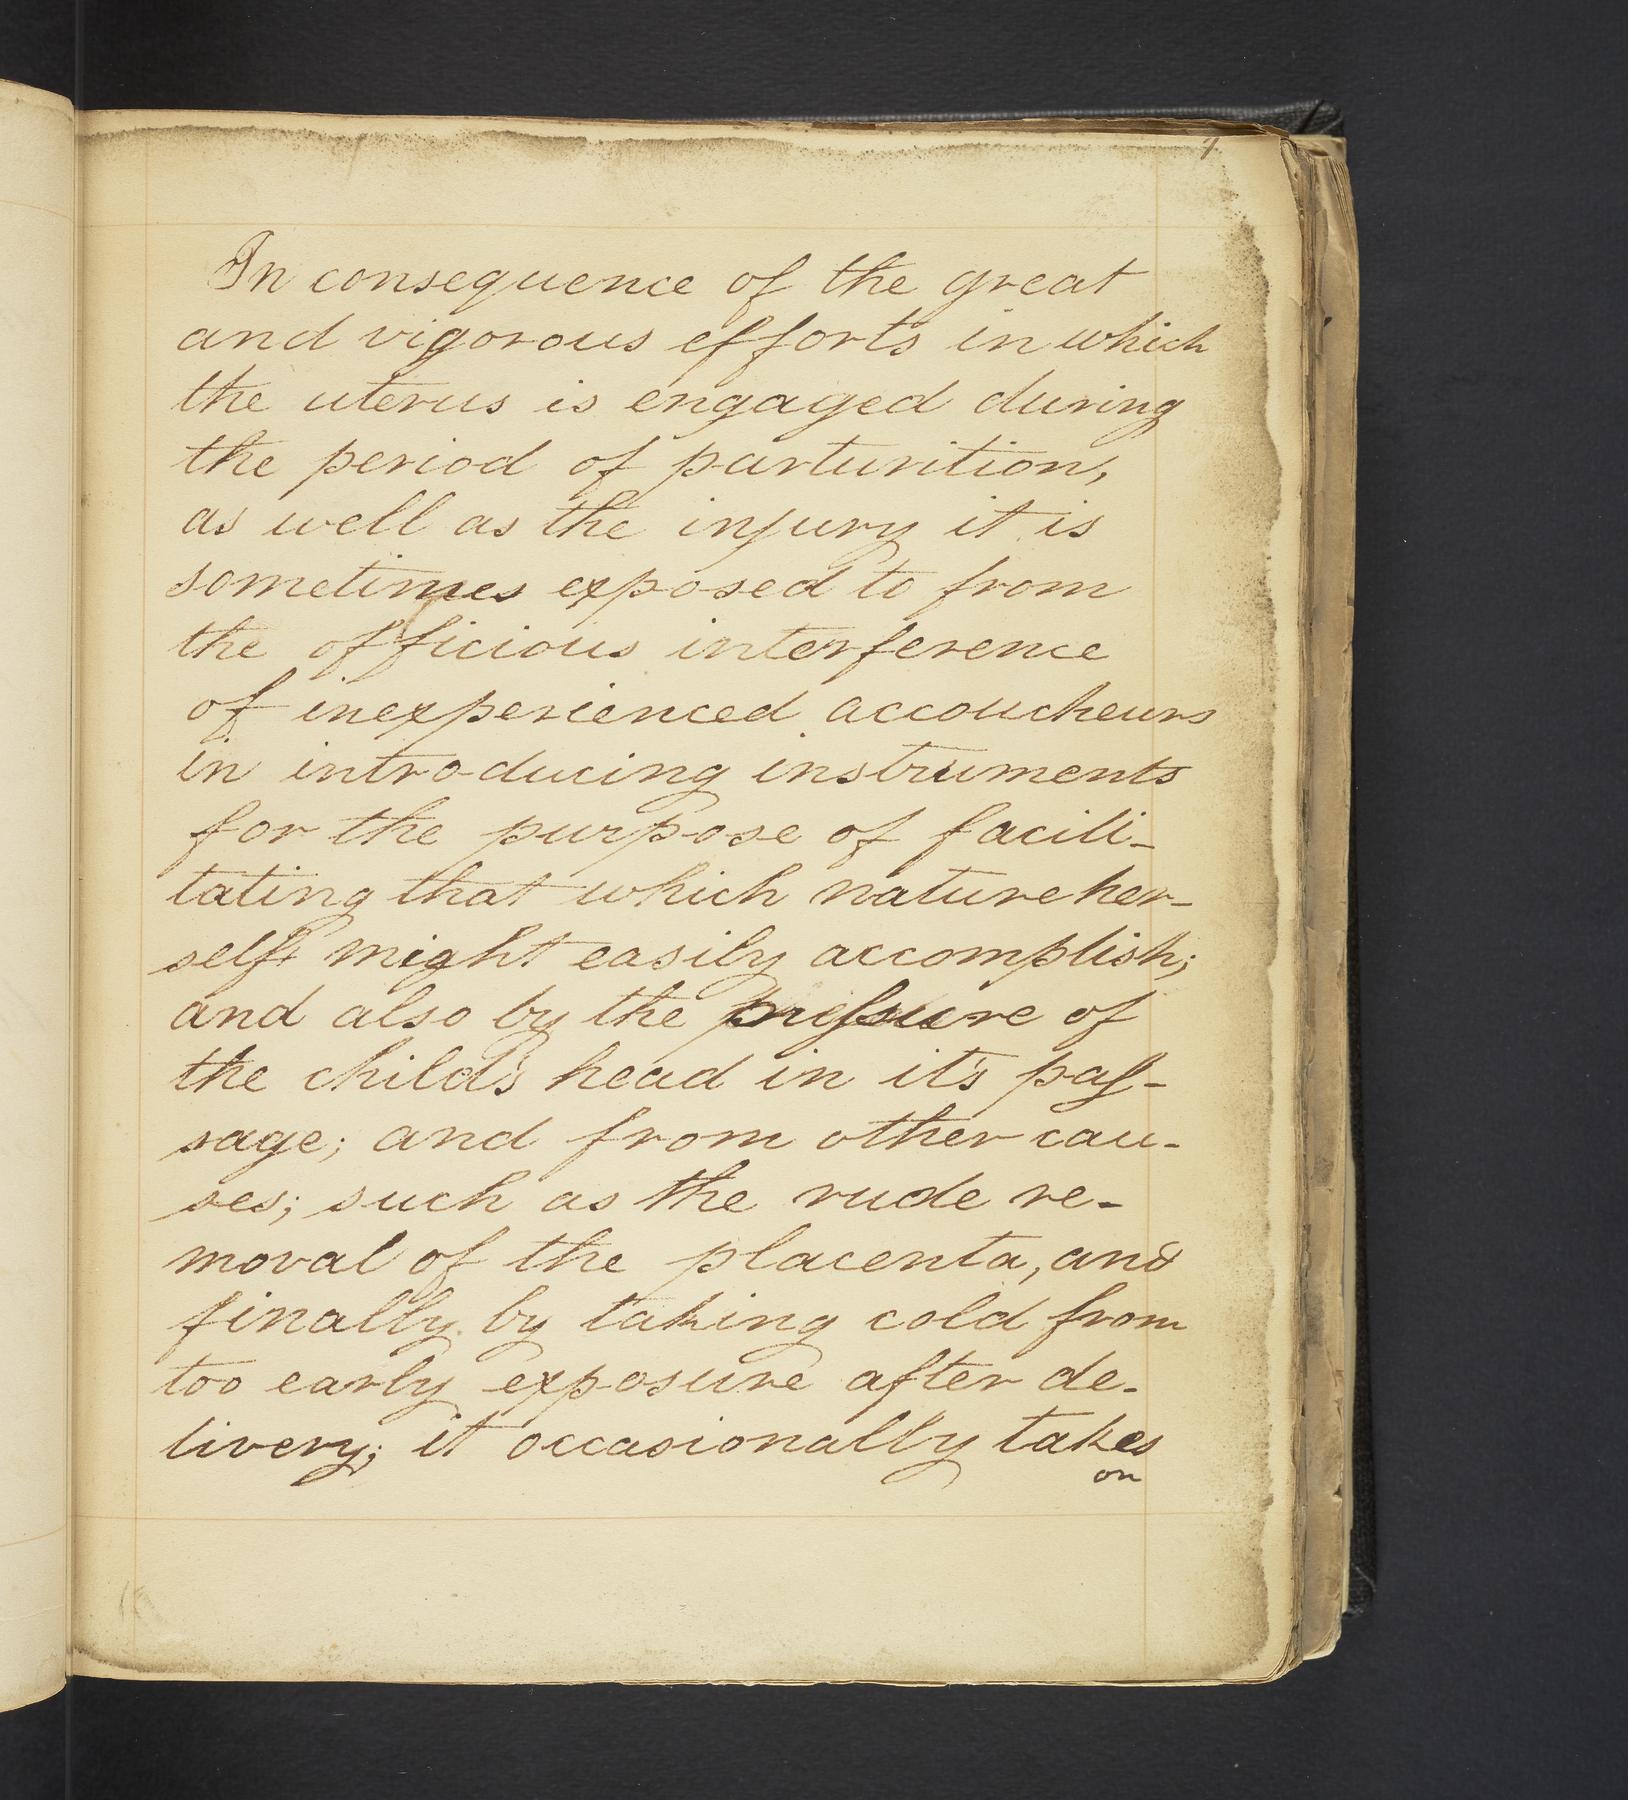 1
In consequence of the great
and vigorous efforts in which
the uterus is engaged during
the period of parturition,
as well as the injury it is
sometimes exposed to from
the officious interference
of inexperienced accoucheurs
in introducing instruments
for the purpose of facili-
tating that which nature her-
self might easily accomplish;
and also by the preſsure of
the child's head in it's paſ-
sage; and from other cau-
ses; such as the rude re-
moval of the placenta, and
finally by taking cold from
too early exposure after de-
livery; it occasionally takes
on